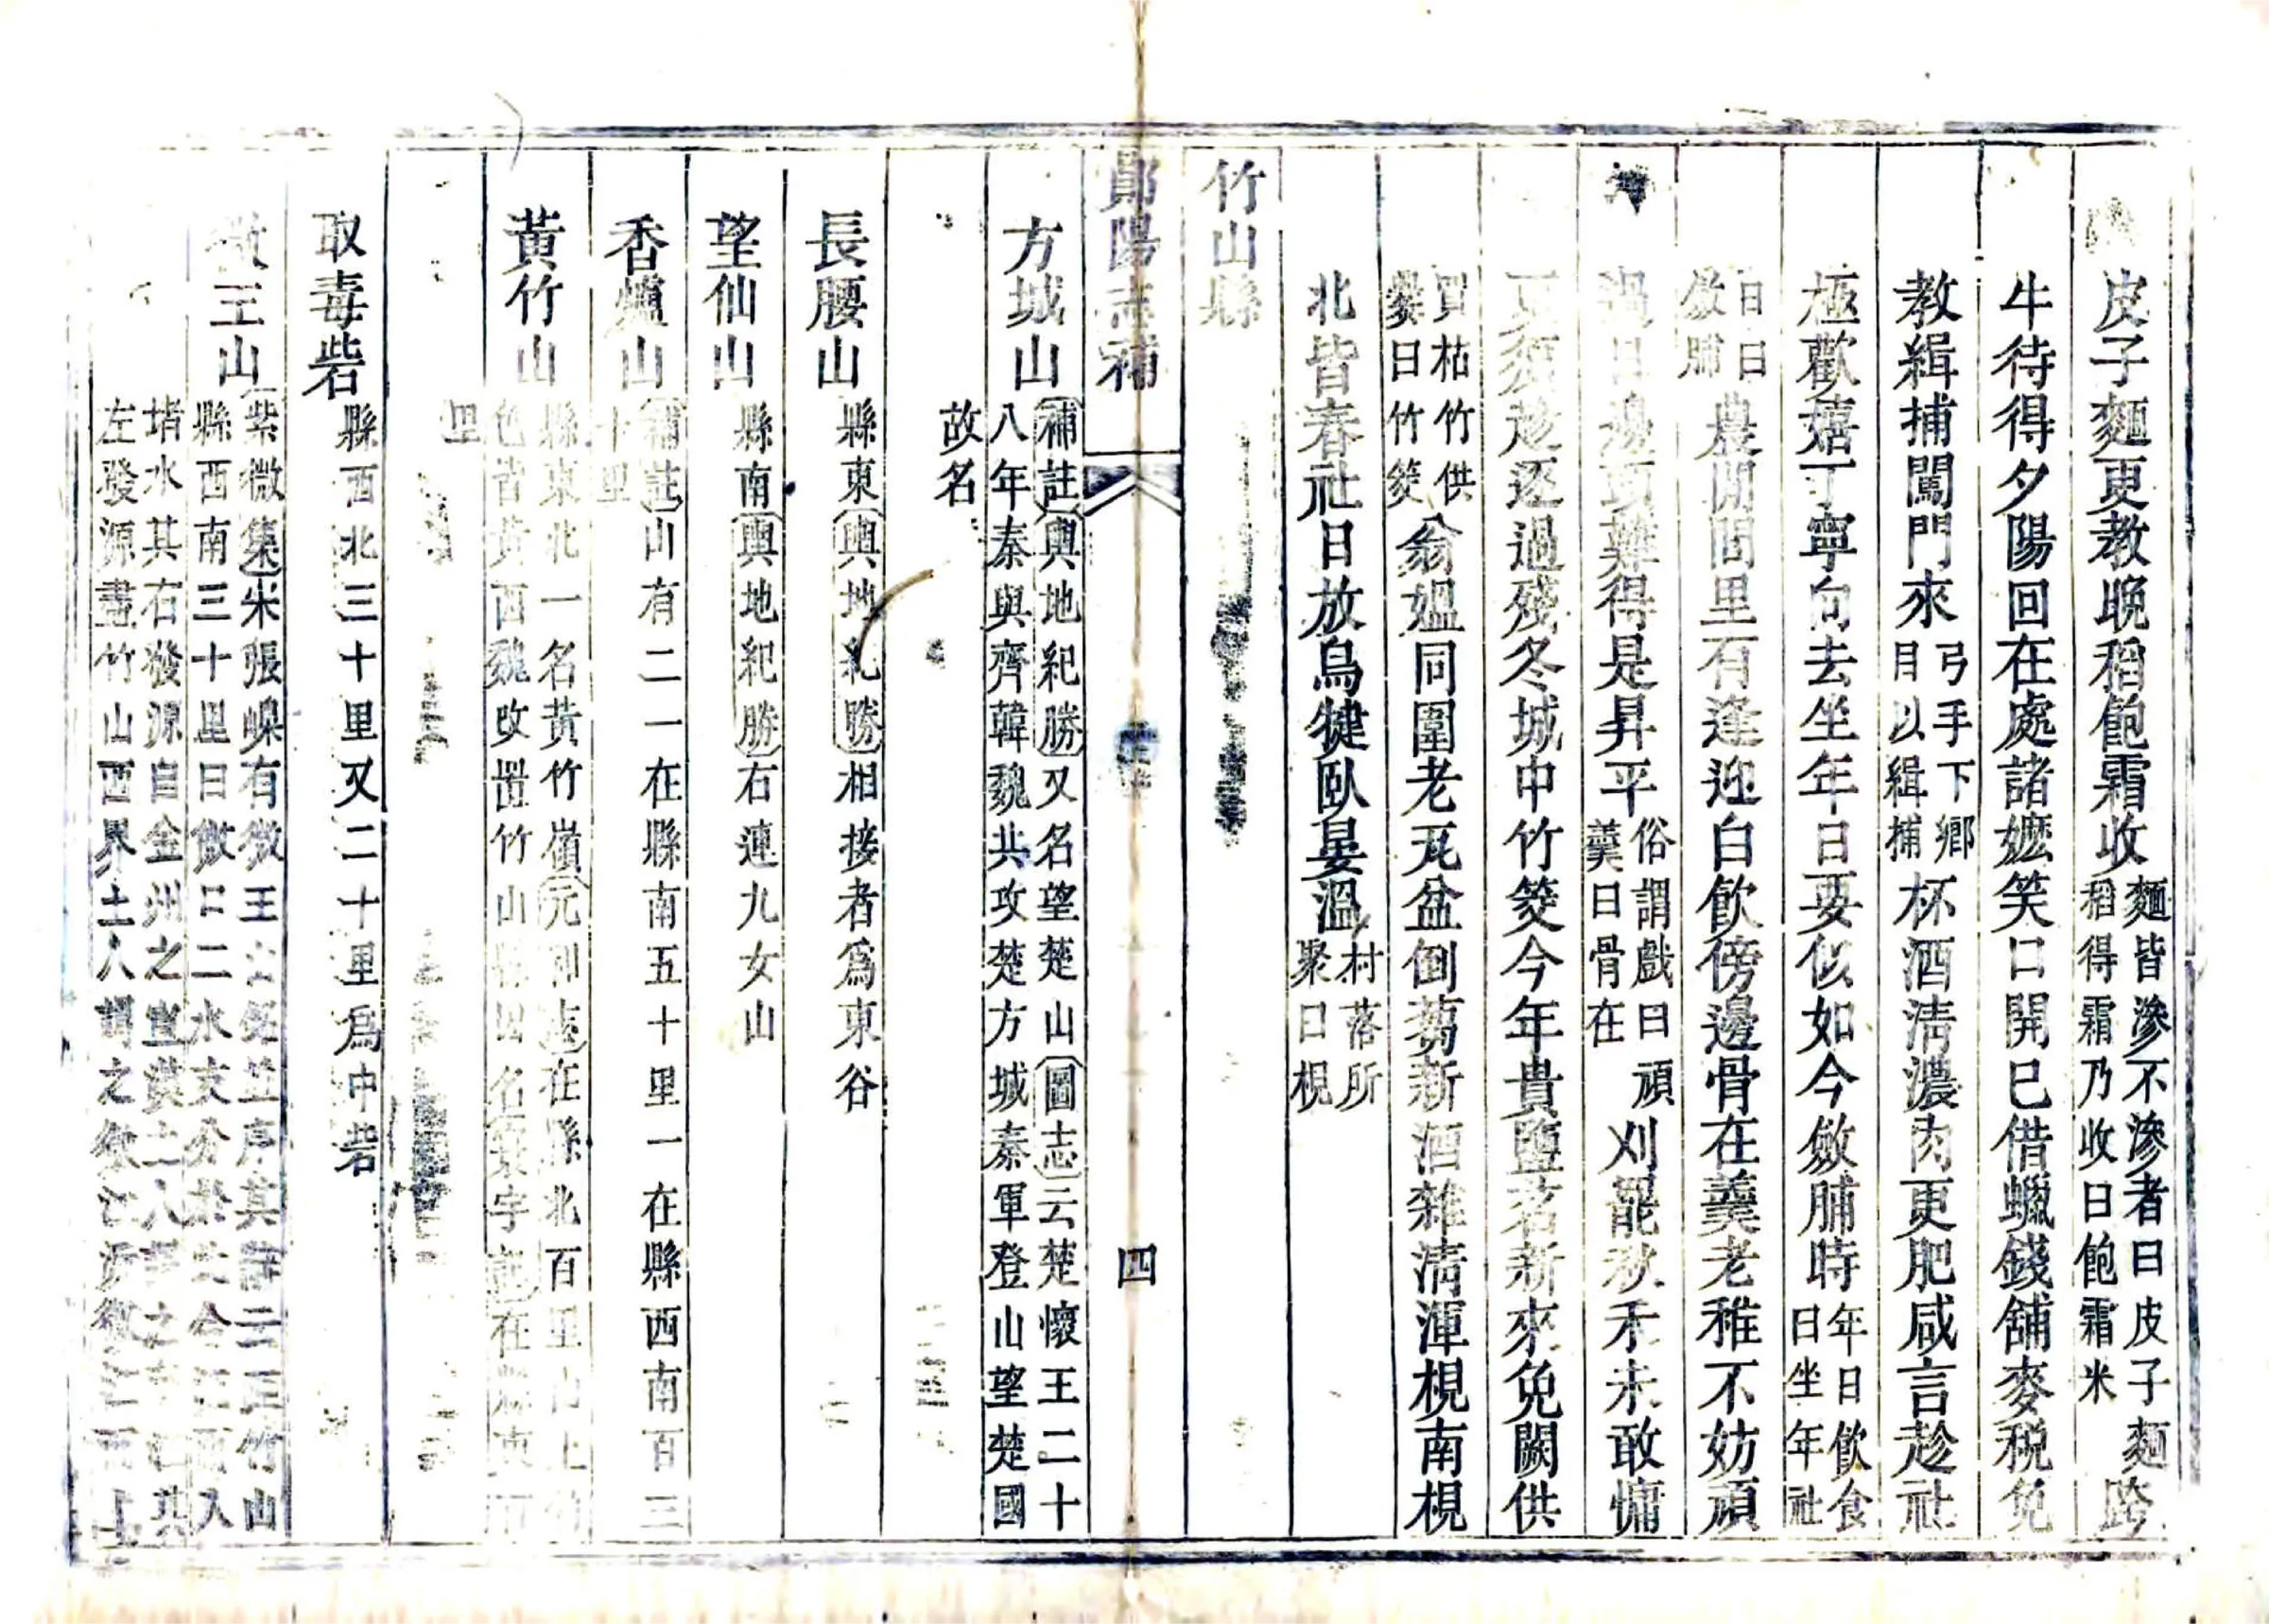 皮子麵更教晚稻飽霜收麵皆滲不滲者曰皮子麵稻得霜乃收曰飽霜米跨
牛待得夕陽回在處諸嬷笑口開已借蠟錢舖麥税免
教緝捕闖門來弓手下鄉目以緝捕杯酒淸濃肉更肥咸言趁社
極歡嬉丁寧向去坐年日要似如今斂脯時年日飲食曰坐年社
日曰斂脯農閒閭里有逢迎白飮傍邊骨在羹老稚不妨頑
過日邊頭難得是昇平俗謂戲曰頑羹曰骨在刈罷秋禾未敢慵
更須趁逐過殘冬城中竹筊今年貴鹽茗新來免闕供
買枯竹供爨曰竹筊翁媼同圍老瓦盆倒蒭新酒雜淸渾梘南梘
北皆春社日放烏犍臥晏溫村落所聚曰梘
竹山縣
鄖陽志補
四
方城山補註輿地紀勝又名望楚山圖志云楚懷王二十
八年秦與齊韓魏共攻楚方城秦軍登山望楚國
故名
長腰山縣東輿地紀勝相接者爲東谷
望仙山縣南輿地紀勝右連九女山
香爐山補註山有二一在縣南五十里一在縣西南百三
十里
黃竹山縣東北一名黃竹嶺元和志在縣北百里山上竹
色皆黃西魏改置竹山縣因名寰宇記在縣東百
里
取毒砦縣西北三十里又二十里爲中砦
微王山紫微集宋張嵲有微王山 並序其 二云竹山
縣西南三十里曰微口二水支分 合 入
堵水其右發源自金州之 土人謂之 其
左發源盡竹山西界土人謂之微江